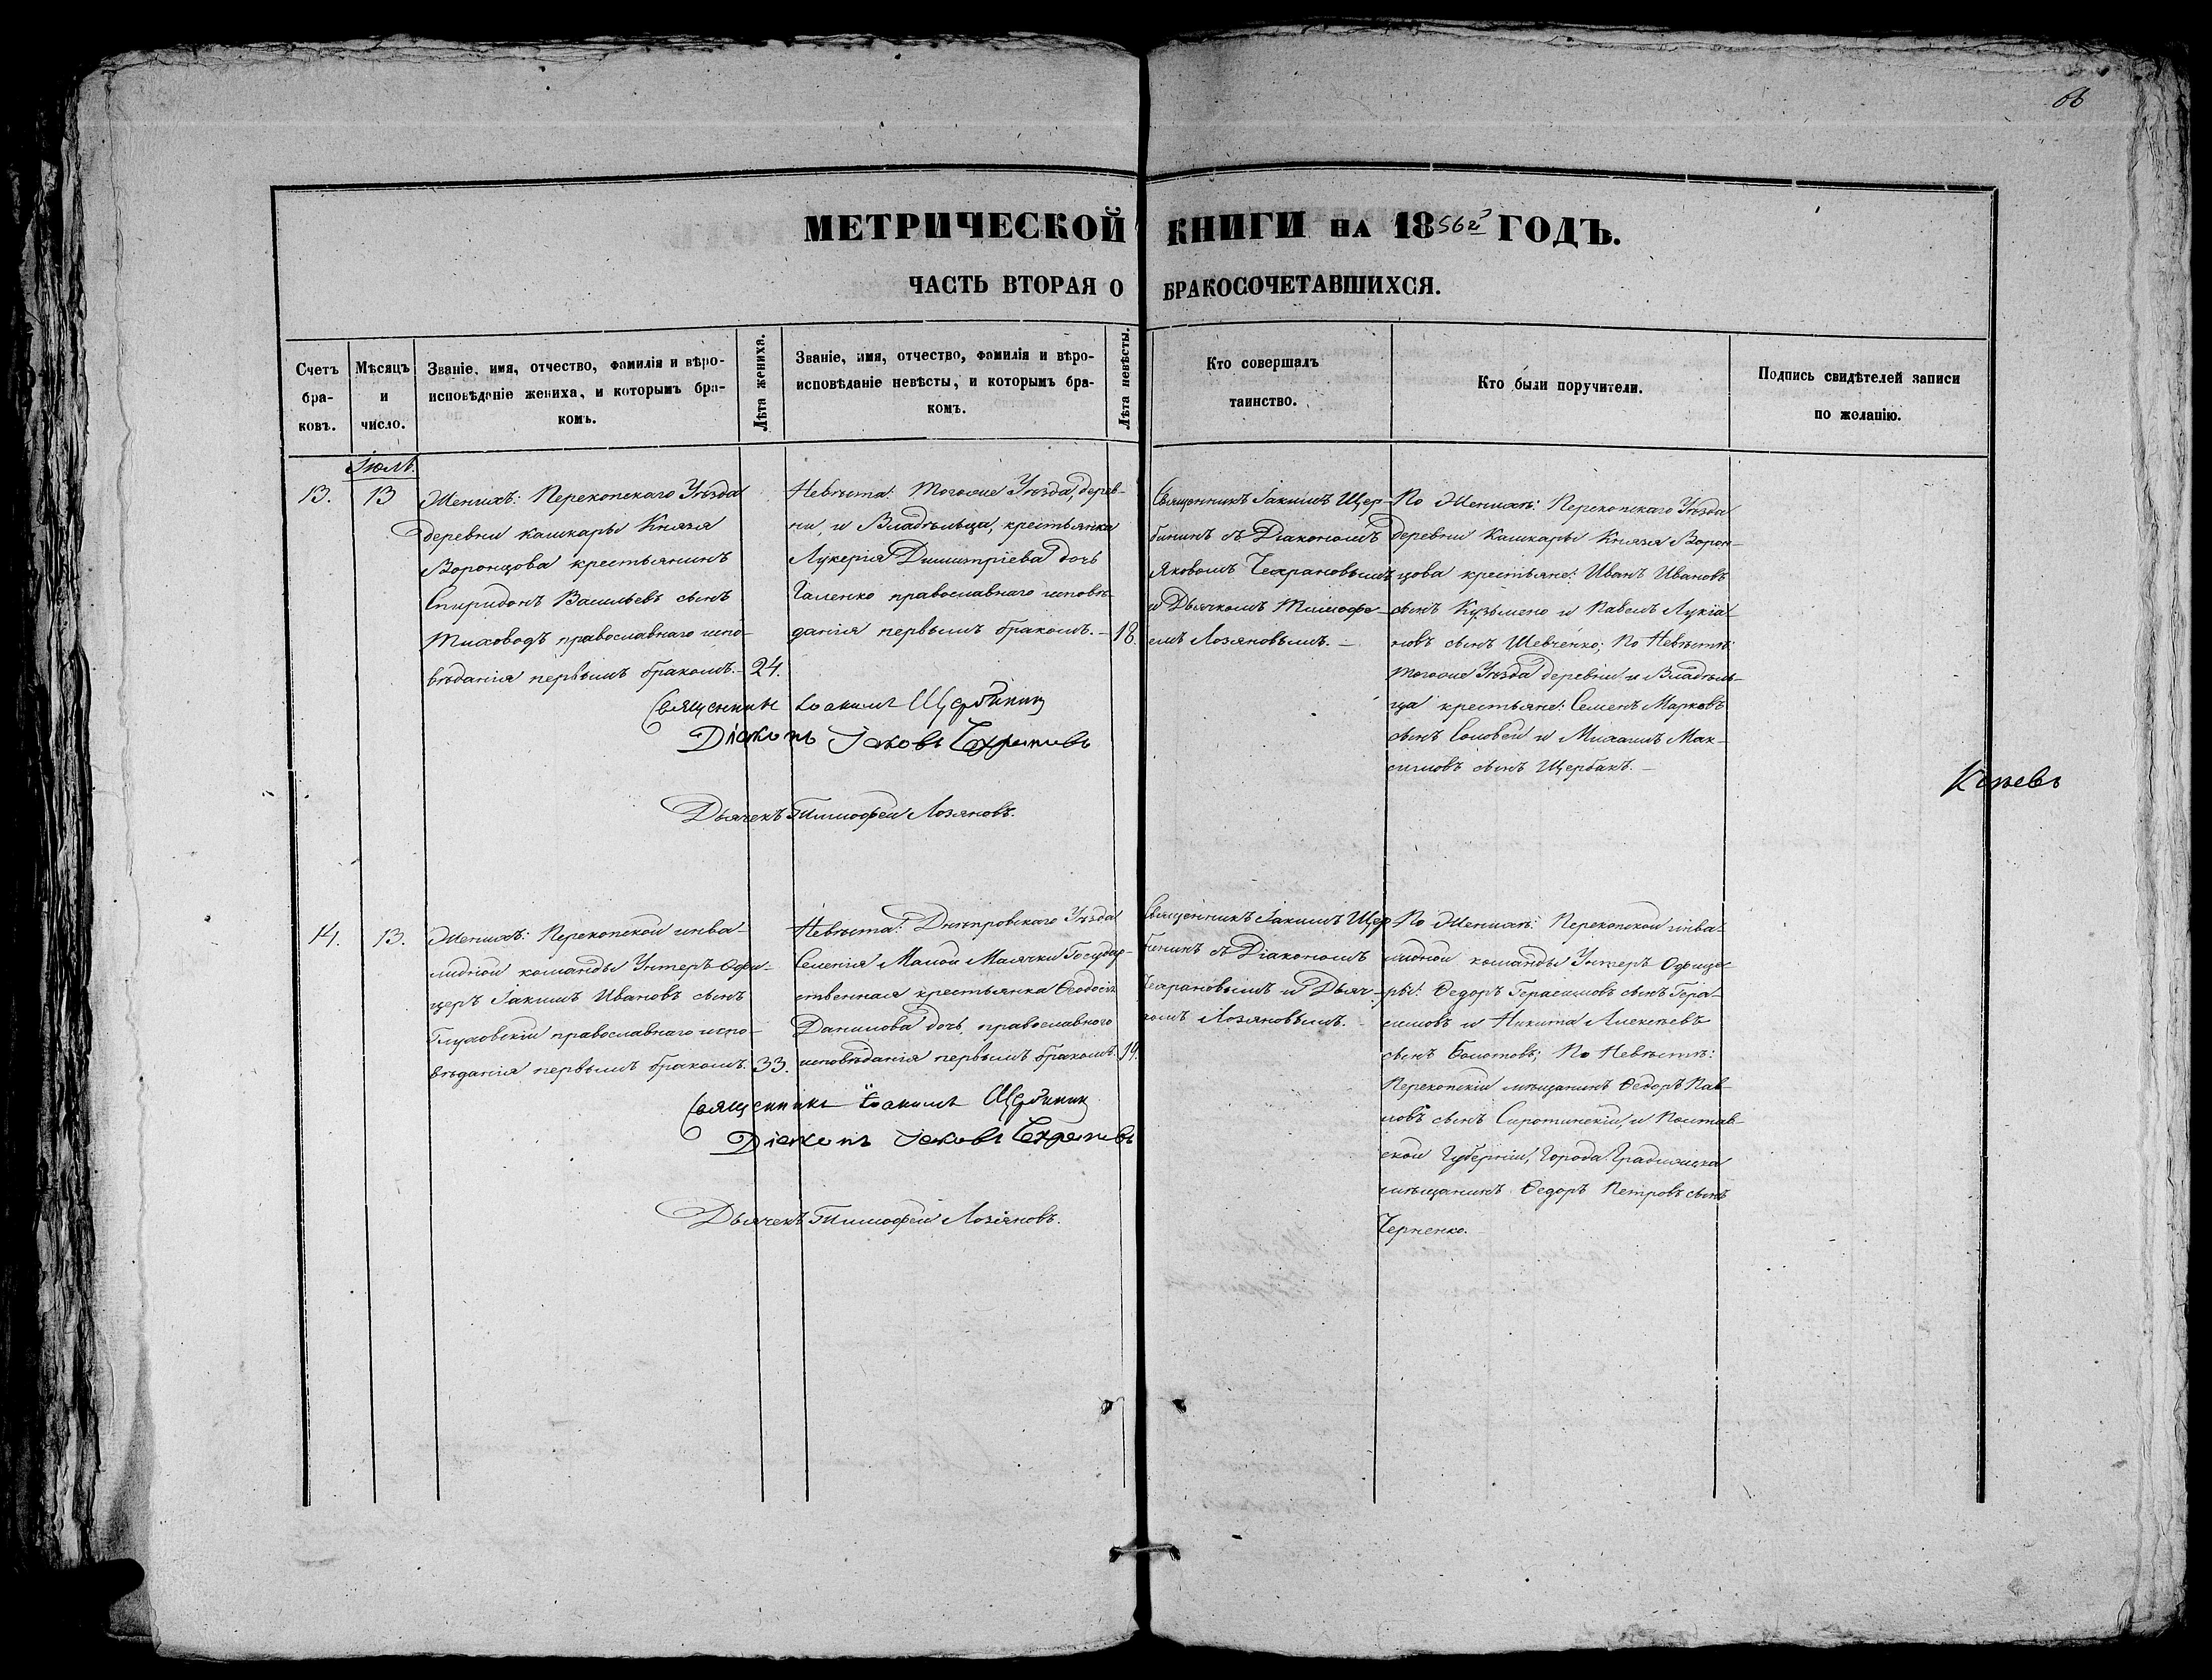 66
МЕТРИЧЕСКОЙ КНИГИ НА 1856г ГОДЪ.
ЧАСТЬ ВТОРАЯ О БРАКОСОЧЕТАВШИХСЯ.
Счетъ бра-
ковъ.
Мѣсяцъ
и
число.
Званіе, имя, отчество, фамилія и вѣро-
исповѣданіе жениха, и которымъ бра-
комъ.
Лѣта жениха.
Званіе, имя, отчество, фамилія и вѣро-
исповѣданіе невѣсты, и которымъ бра-
комъ.
Лѣта невѣсты.
Кто совершалъ
таинство.
Кто были поручители.
Подпись свидѣтелей записи
по желанію.
Іюль.
13.
13
Женихъ: Перекопскаго Уѣзда
деревни Кашкары Князя
Воронцова крестьянинъ
Спиридонъ Васильевъ сынъ
Тиховодъ православнаго испо-
вѣданія первымъ бракомъ.-
24.
Невѣста: Тогоже Уѣзда, дерев-
ни, и Владѣльца, крестьянка
Лукерія Димитріева дочь
Галенко православнаго исповѣ-
данія первымъ бракомъ.-
18.
Священникъ Іакимъ Щер-
бининъ съ Діакономъ
Яковомъ Чехрановымъ
и Дьячкомъ Тимофе-
емъ Лозяновымъ.-
По Женихѣ: Перекопскаго Уѣзда
деревни Кашкары Князя Ворон-
цова крестьяне: Иванъ Ивановъ
сынъ Кузьмено и Павелъ Лукіа-
новъ сынъ Шевченко; По Невѣстѣ:
тогоже Уѣзда деревни и Владѣль-
ца крестьяне: Семенъ Марковъ
сынъ Соловей и Михаилъ Мак-
симовъ сынъ Щербакъ.-
Священникъ Іоакимъ Щербининъ
Діаконъ Іаковъ Чехрановъ
Дьячекъ Тимофей Лозяновъ.
14.
13.
Женихъ: Перекопской инва-
лидной команды Унтеръ-Офи-
церъ Іакимъ Ивановъ сынъ
Глуховскій православнаго испо-
вѣданія первымъ бракомъ.
33.
Невѣста: Днѣпровскаго Уѣзда
Селенія Малой Маячки Государ-
ственная крестьянка Ѳеодосія
Данилова дочь, православнаго
исповѣданія первымъ бракомъ.
19.
Священникъ Іакимъ Щер-
бининъ съ Діакономъ
Чехрановымъ и Дьяч-
комъ Лозяновымъ.
По Женихѣ: Перекопской инва-
лидной команды Унтеръ Офице-
ры: Ѳедоръ Герасимовъ сынъ Гера-
симовъ и Никита Алексѣевъ
сынъ Болотовъ; По Невѣстѣ:
Перекопскій мѣщанинъ Ѳедоръ Пав-
ловъ сынъ Сиротинскій, и Полтав-
ской Губерніи, Города Градижска
мѣщанинъ Ѳедоръ Петровъ сынъ
Черненко.
Священникъ Іоакимъ Щербининъ
Діаконъ Іаковъ Чехрановъ
Дьячекъ Тимофей Лозяновъ.